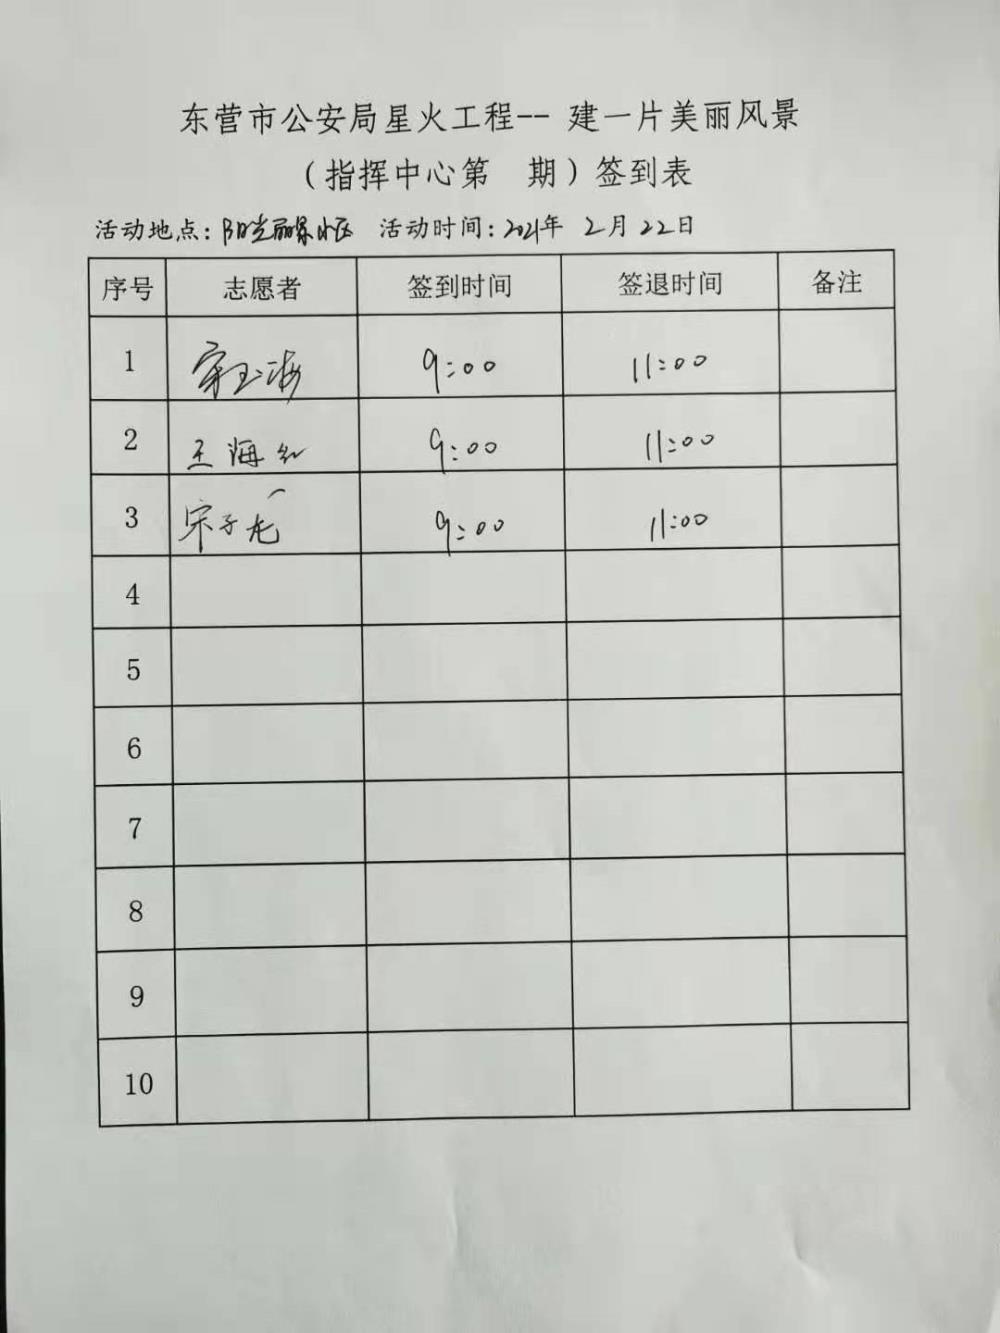 东营市公安局星火工程-- 建一片美丽风景
（指挥中心第 期）签到表
活动地点：阳光丽景小区 活动时间：2021年 2月22日
序号 志愿者 签到时间 签退时间 备注
1 宋玉海 9:00 11:00
2 王海红 9:00 11:00
3 宋子龙 9:00 11:00
4
5
6
7
8
9
10